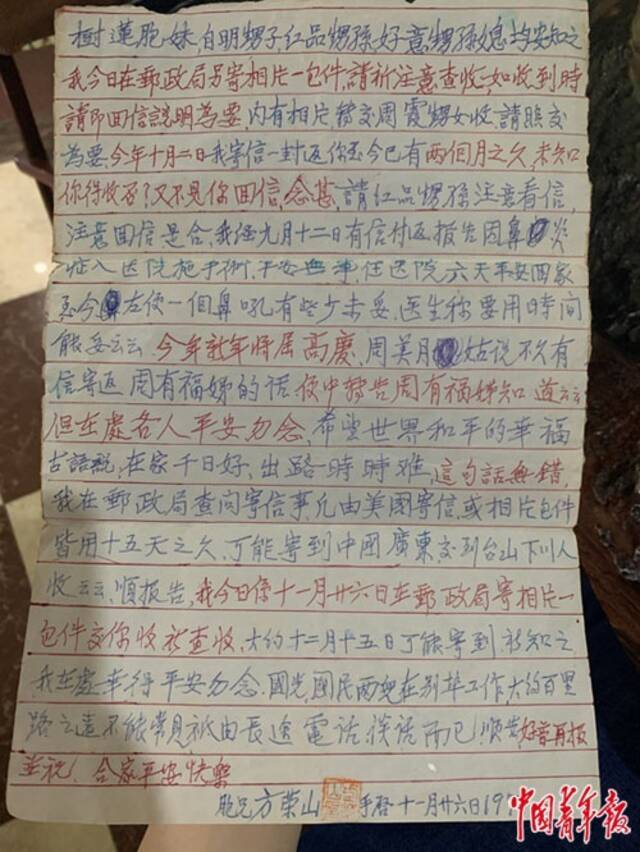 樹蓮胞妹自明甥子紅品甥孫好意甥孫媳均安知之
我今日在郵政局另寄相片一包件,請祈注意查收,如收到時
請即回信說明為要,內有相片轉交周霞甥女收,請照交
為要,今年十月二日我寄信一封返你至今已有兩個月之久,未知
你得收否?又不見你回信,念甚,請紅品甥孫注意看信,
注意回信是合,我經九月十二日有信付返报告因鼻炎
症入医院施手術,平安無事,住医院六天平安回家
至今左使一個鼻吼有些少未妥,医生称要用時間
能妥云云 今年新年将屆高慶,周美月姑说不久有
信寄返周有福娣的话,使中轉告周有福娣知道云云
但在處各人平安勿念,希望世界和平的幸福
古語説,在家千日好,出路時時难,這句話無错,
我在郵政局查问寄信事凡由美國寄信,或相片包件
皆用十五天之久,了能寄到中國廣東交到台山下川人
收云云,順报告,我今日係十一月廿六日在郵政局寄相片一
包件交你收祈查收,大約十二月十五日了能寄到祈知之,
我在處幸得平安勿念,國光,國民兩兒在别埠工作,大約百里
路之遠不能常見祗由長途電話談话而已,順告,好音再报
並祝,合家平安快樂
胞兄方荣山 十一月廿六日19
中國青年報